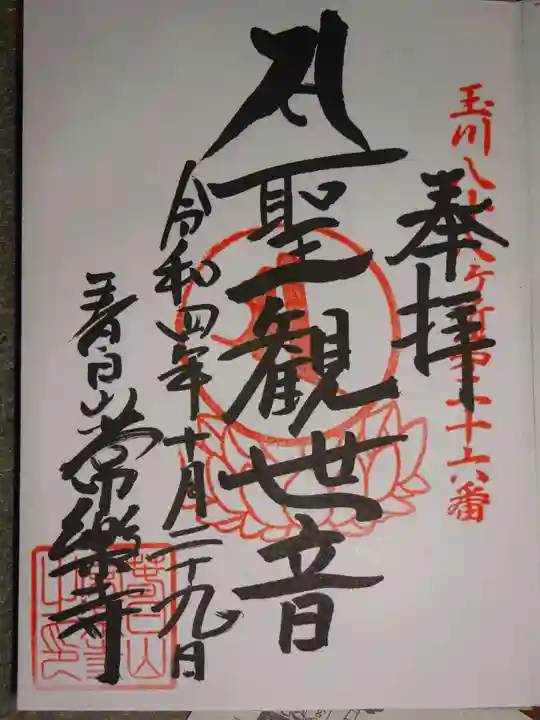 玉川八十八ヶ所第三十六番
奉拝
聖観世音
令和四年十月二十九日
春日山常樂寺